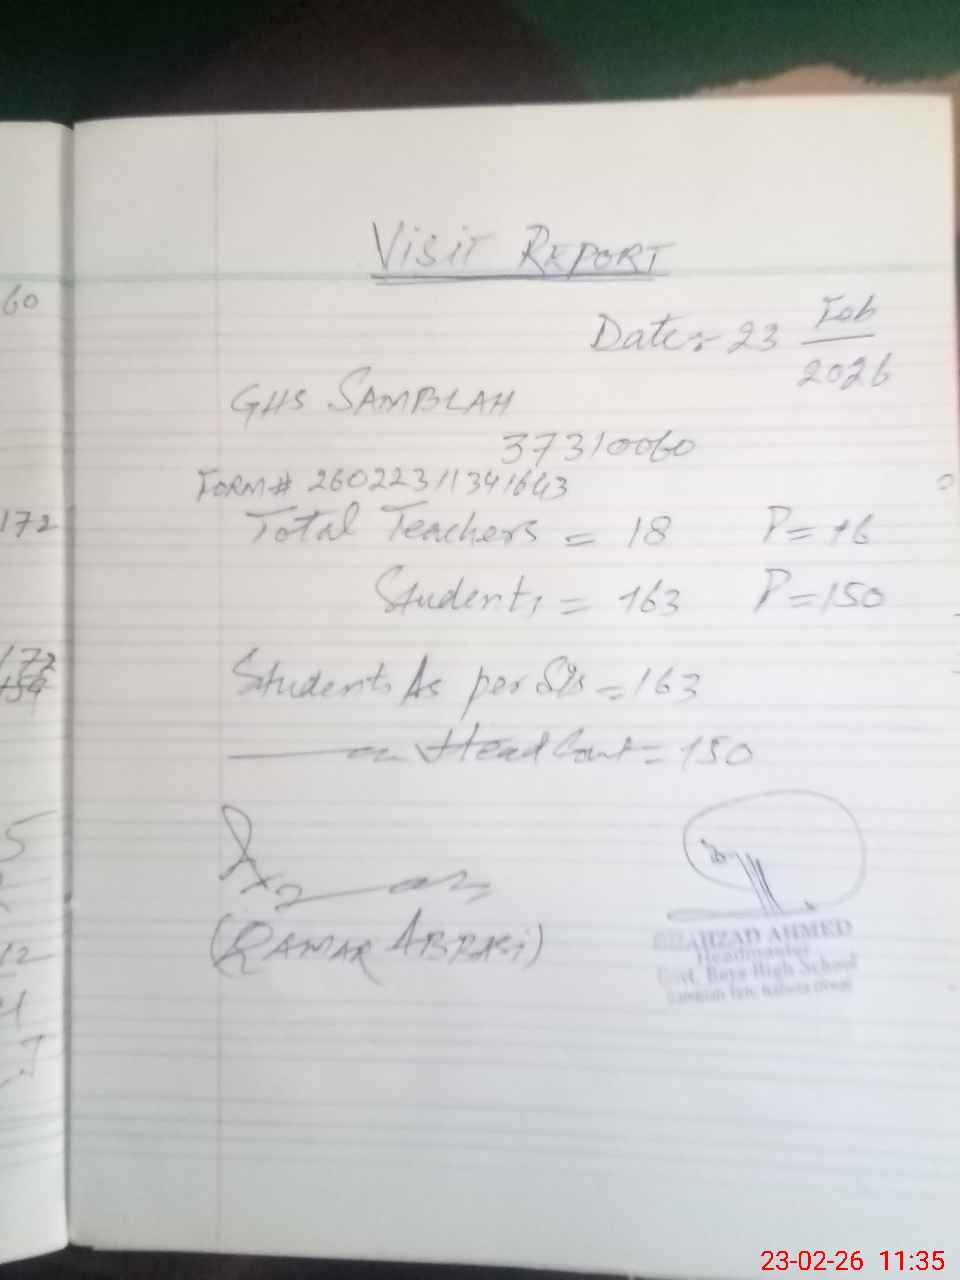 VISIT REPORT
Date:- 23 Feb
2026
GHS SAMBLAH
37310060
FORM# 26022311341643
Total Teachers = 18 P= 16
Students = 163 P=150
Students As per SIS = 163
Head Count = 150
(QAMAR ABBASI)
SHAHZAD AHMED
Headmaster
Govt. Boys High School
60
172
172
5
12
23-02-26 11:35